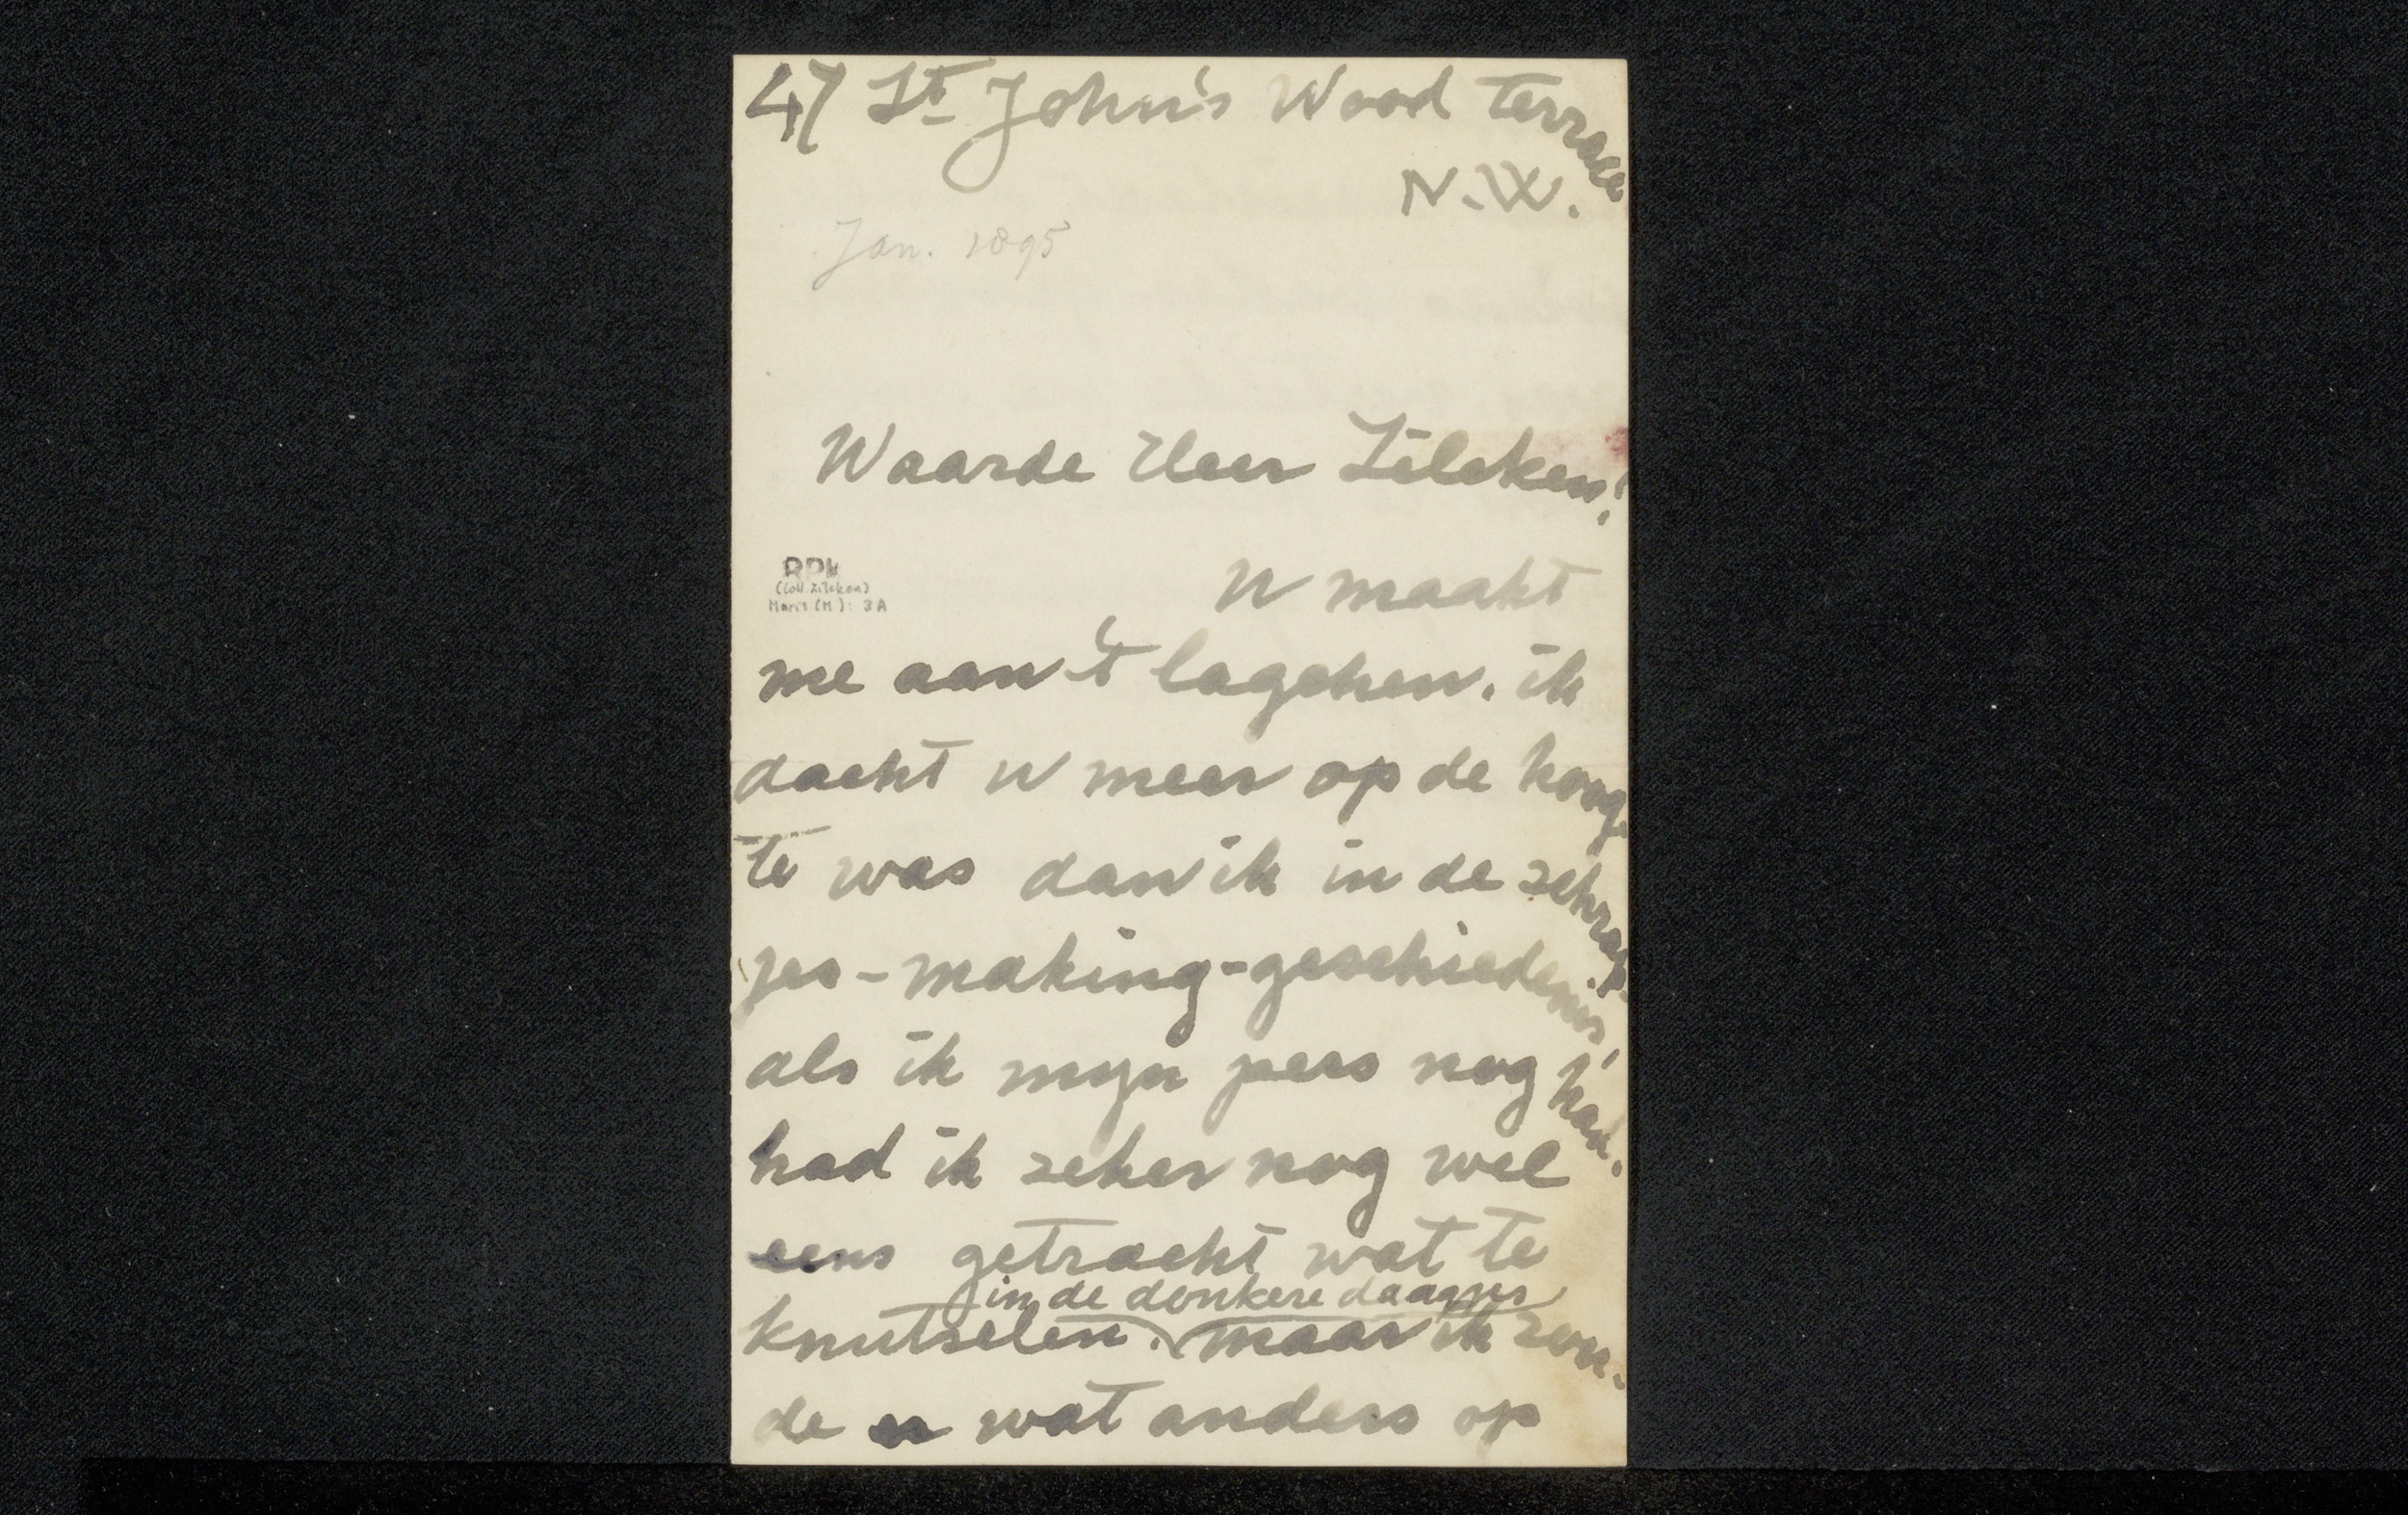 47 St John's Wood terrace
N.W.
Jan. 1895
Waarde Heer Zilcken!
RPK
(Coll. Zilcken)
Maris (M.): 3A
U maakt
me aan 't lagchen. ik
dacht u meer op de hoog-
te was dan ik in de schrap-
jes-making-geschiedenis,
als ik myn pers nog had.
had ik zeker nog wel
eens getracht wat te
in de donkere daagjes
knutselen. maar ik zou-
de er wat anders op